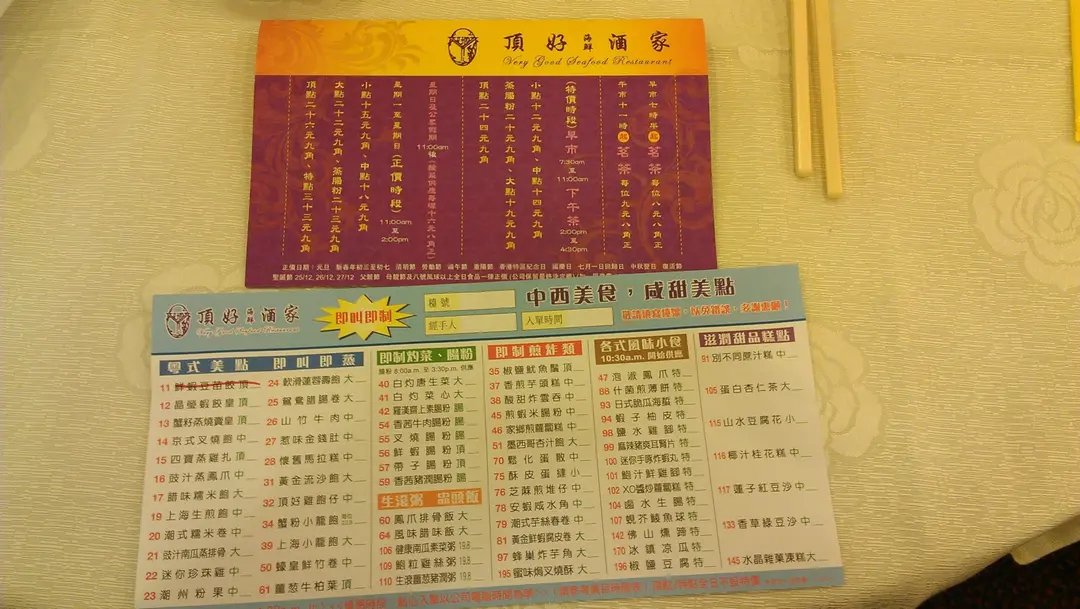 頂好海鮮酒家
Very Good Seafood Restaurant
早市七時半起 茗茶每位八元八角正
午市十一時起 茗茶每位九元八角正
(特價時段)早市 7:30am 至 11:00am 下午茶 2:00pm 至 4:30pm
小點十二元九角、中點十四元九角
蒸腸粉二十元九角、大點十九元九角
頂點二十四元九角
星期日及公眾假期 11:00am 後
星期一至星期日(正價時段) 11:00am 至 2:00pm
小點十五元九角、中點十八元九角
大點二十二元九角、蒸腸粉二十三元九角
頂點二十六元九角、特點三十三元九角
正價日期:元旦 新春年初三至初七 清明節 勞動節 端午節 重陽節 香港特區紀念日 國慶日 七月一日回歸日 中秋翌日 復活節
聖誕節 25/12, 26/12, 27/12 父親節 母親節及八號風球以上全日食品一律正價
頂好海鮮酒家
Very Good Seafood Restaurant
即叫即制
檯號
經手人
入單時間
中西美食,咸甜美點
敬請填寫檯號,以免錯誤,多謝惠顧!
粵式美點 即叫即蒸
11 鮮蝦豆苗餃 頂
12 晶瑩蝦餃皇 頂
13 蟹籽蒸燒賣皇 頂
14 京式叉燒飽 中
15 四寶蒸雞扎 頂
16 豉汁蒸鳳爪 中
17 臘味糯米飽 大
19 上海生煎飽 中
20 潮式糯米卷 中
21 豉汁南瓜蒸排骨 大
22 迷你珍珠雞 中
23 潮州粉果 中
24 軟滑蓮蓉壽飽 大
25 鴛鴦腊腸卷 大
26 山竹牛肉 中
27 惹味金錢肚 中
28 懷舊馬拉糕 中
31 黃金流沙飽 大
32 頂好雞飽仔 中
34 蟹粉小龍飽
39 上海小龍飽 大
50 蠔皇鮮竹卷 中
61 薑葱牛柏葉 頂
即制灼菜、腸粉
腸粉 8:00a.m. 至 3:30p.m. 供應
40 白灼唐生菜 大
41 白灼菜心 大
42 羅漢齋上素腸粉 腸
54 香茜牛肉腸粉 腸
55 叉燒腸粉 腸
56 鮮蝦腸粉 頂
57 帶子腸粉 頂
59 香茜豬潤腸粉 腸
生滾粥 盅頭飯
60 鳳爪排骨飯 大
64 風味腊味飯 大
106 健康南瓜素菜粥 19.8
109 鮑粒雞絲粥 19.8
110 生滾薑葱豬潤粥 19.8
即制煎炸類
35 椒鹽魷魚鬚 頂
37 香煎芋頭糕 中
38 酸甜炸雲吞 中
45 煎蝦米腸粉 中
46 家鄉煎蘿蔔糕 中
51 墨西哥杏汁飽 大
70 鬆化蛋散 中
75 酥皮蛋撻 小
76 芝蔴煎堆仔 中
78 安蝦咸水角 中
79 潮式芋絲春卷 中
81 黃金鮮蝦腐皮卷 大
97 蜂巢炸芋角 大
195 蜜味焗叉燒酥 大
各式風味小食
10:30a.m. 開始供應
47 泡滋鳳爪 特
88 什菌煎薄餅 特
93 日式脆瓜海蜇 特
94 蝦子柚皮 特
98 鹽水雞腳 特
99 麻辣豬爽耳腎片 特
100 迷你手啄炸蝦丸 特
101 鮑汁鮮雞腳 特
102 XO醬炒蘿蔔糕 特
104 鹵水生腸 特
107 蜆芥鯪魚球 特
142 佛山燻蹄 特
170 冰鎮涼瓜 特
196 椒鹽豆腐 特
滋潤甜品糕點
91 別不同蔗汁糕 中
105 蛋白杏仁茶 大
115 山水豆腐花 小
116 椰汁桂花糕 中
117 蓮子紅豆沙 中
133 香草綠豆沙 中
145 水晶雜菓凍糕 大